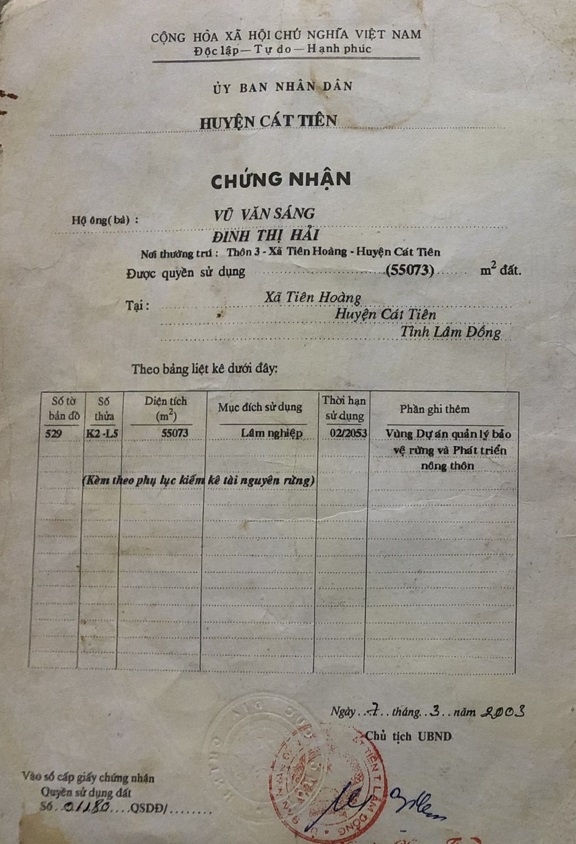 CỘNG HÒA XÃ HỘI CHỦ NGHĨA VIỆT NAM
Độc lập — Tự do — Hạnh phúc
ỦY BAN NHÂN DÂN
HUYỆN CÁT TIÊN
CHỨNG NHẬN
Hộ ông(bà) : VŨ VĂN SÁNG
ĐINH THỊ HẢI
Nơi thường trú : Thôn 3 - Xã Tiên Hoàng - Huyện Cát Tiên
Được quyền sử dụng (55073) m² đất.
Tại : Xã Tiên Hoàng
Huyện Cát Tiên
Tỉnh Lâm Đồng
Theo bảng liệt kê dưới đây:
Số tờ bản đồ Số thửa Diện tích (m²) Mục đích sử dụng Thời hạn sử dụng Phần ghi thêm
529 K2-L5 55073 Lâm nghiệp 02/2053 Vùng Dự án quản lý bảo
vệ rừng và Phát triển
nông thôn
(Kèm theo phụ lục kiểm kê tài nguyên rừng)
Ngày 7 tháng 3 năm 2003
Chủ tịch UBND
Vào sổ cấp giấy chứng nhận
Quyền sử dụng đất
Số 01180 QSDĐ/